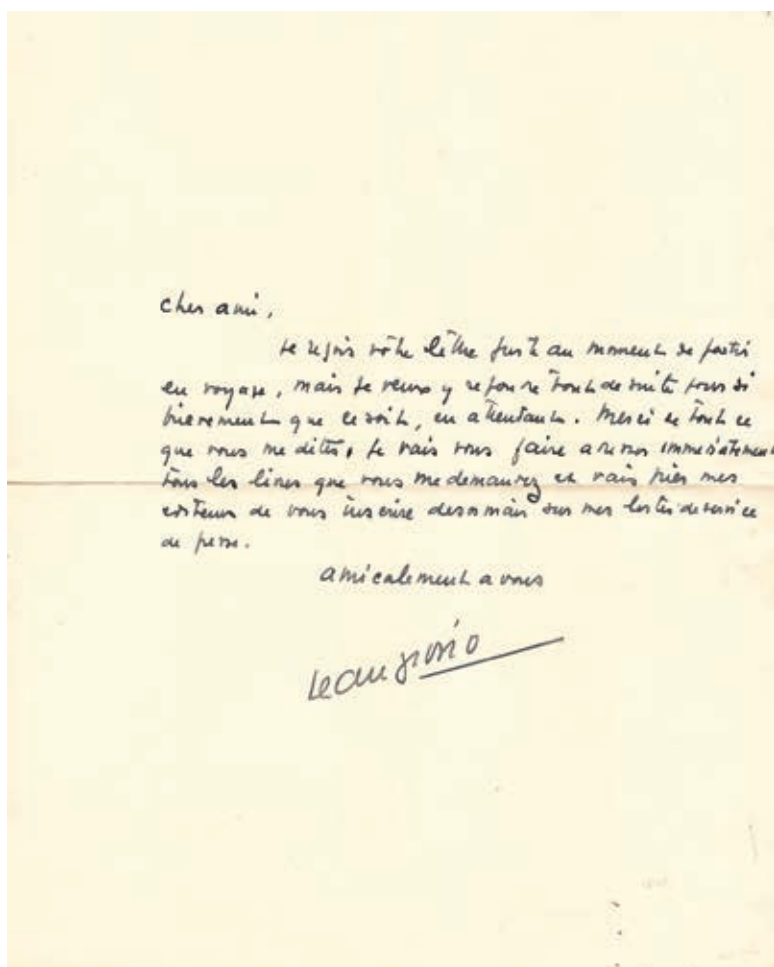 Cher ami,
Je reçois votre lettre juste au moment de partir
en voyage, mais je veux y repondre tout de suite si
brievement que ce soit, en attendant. Merci de tout ce
que vous me dites, je vais vous faire adresser immediatement
tous les livres que vous me demandez et vais prier mes
editeurs de vous inscrire desormais sur mes listes de service
de presse.
amicalement a vous
Jean Giono